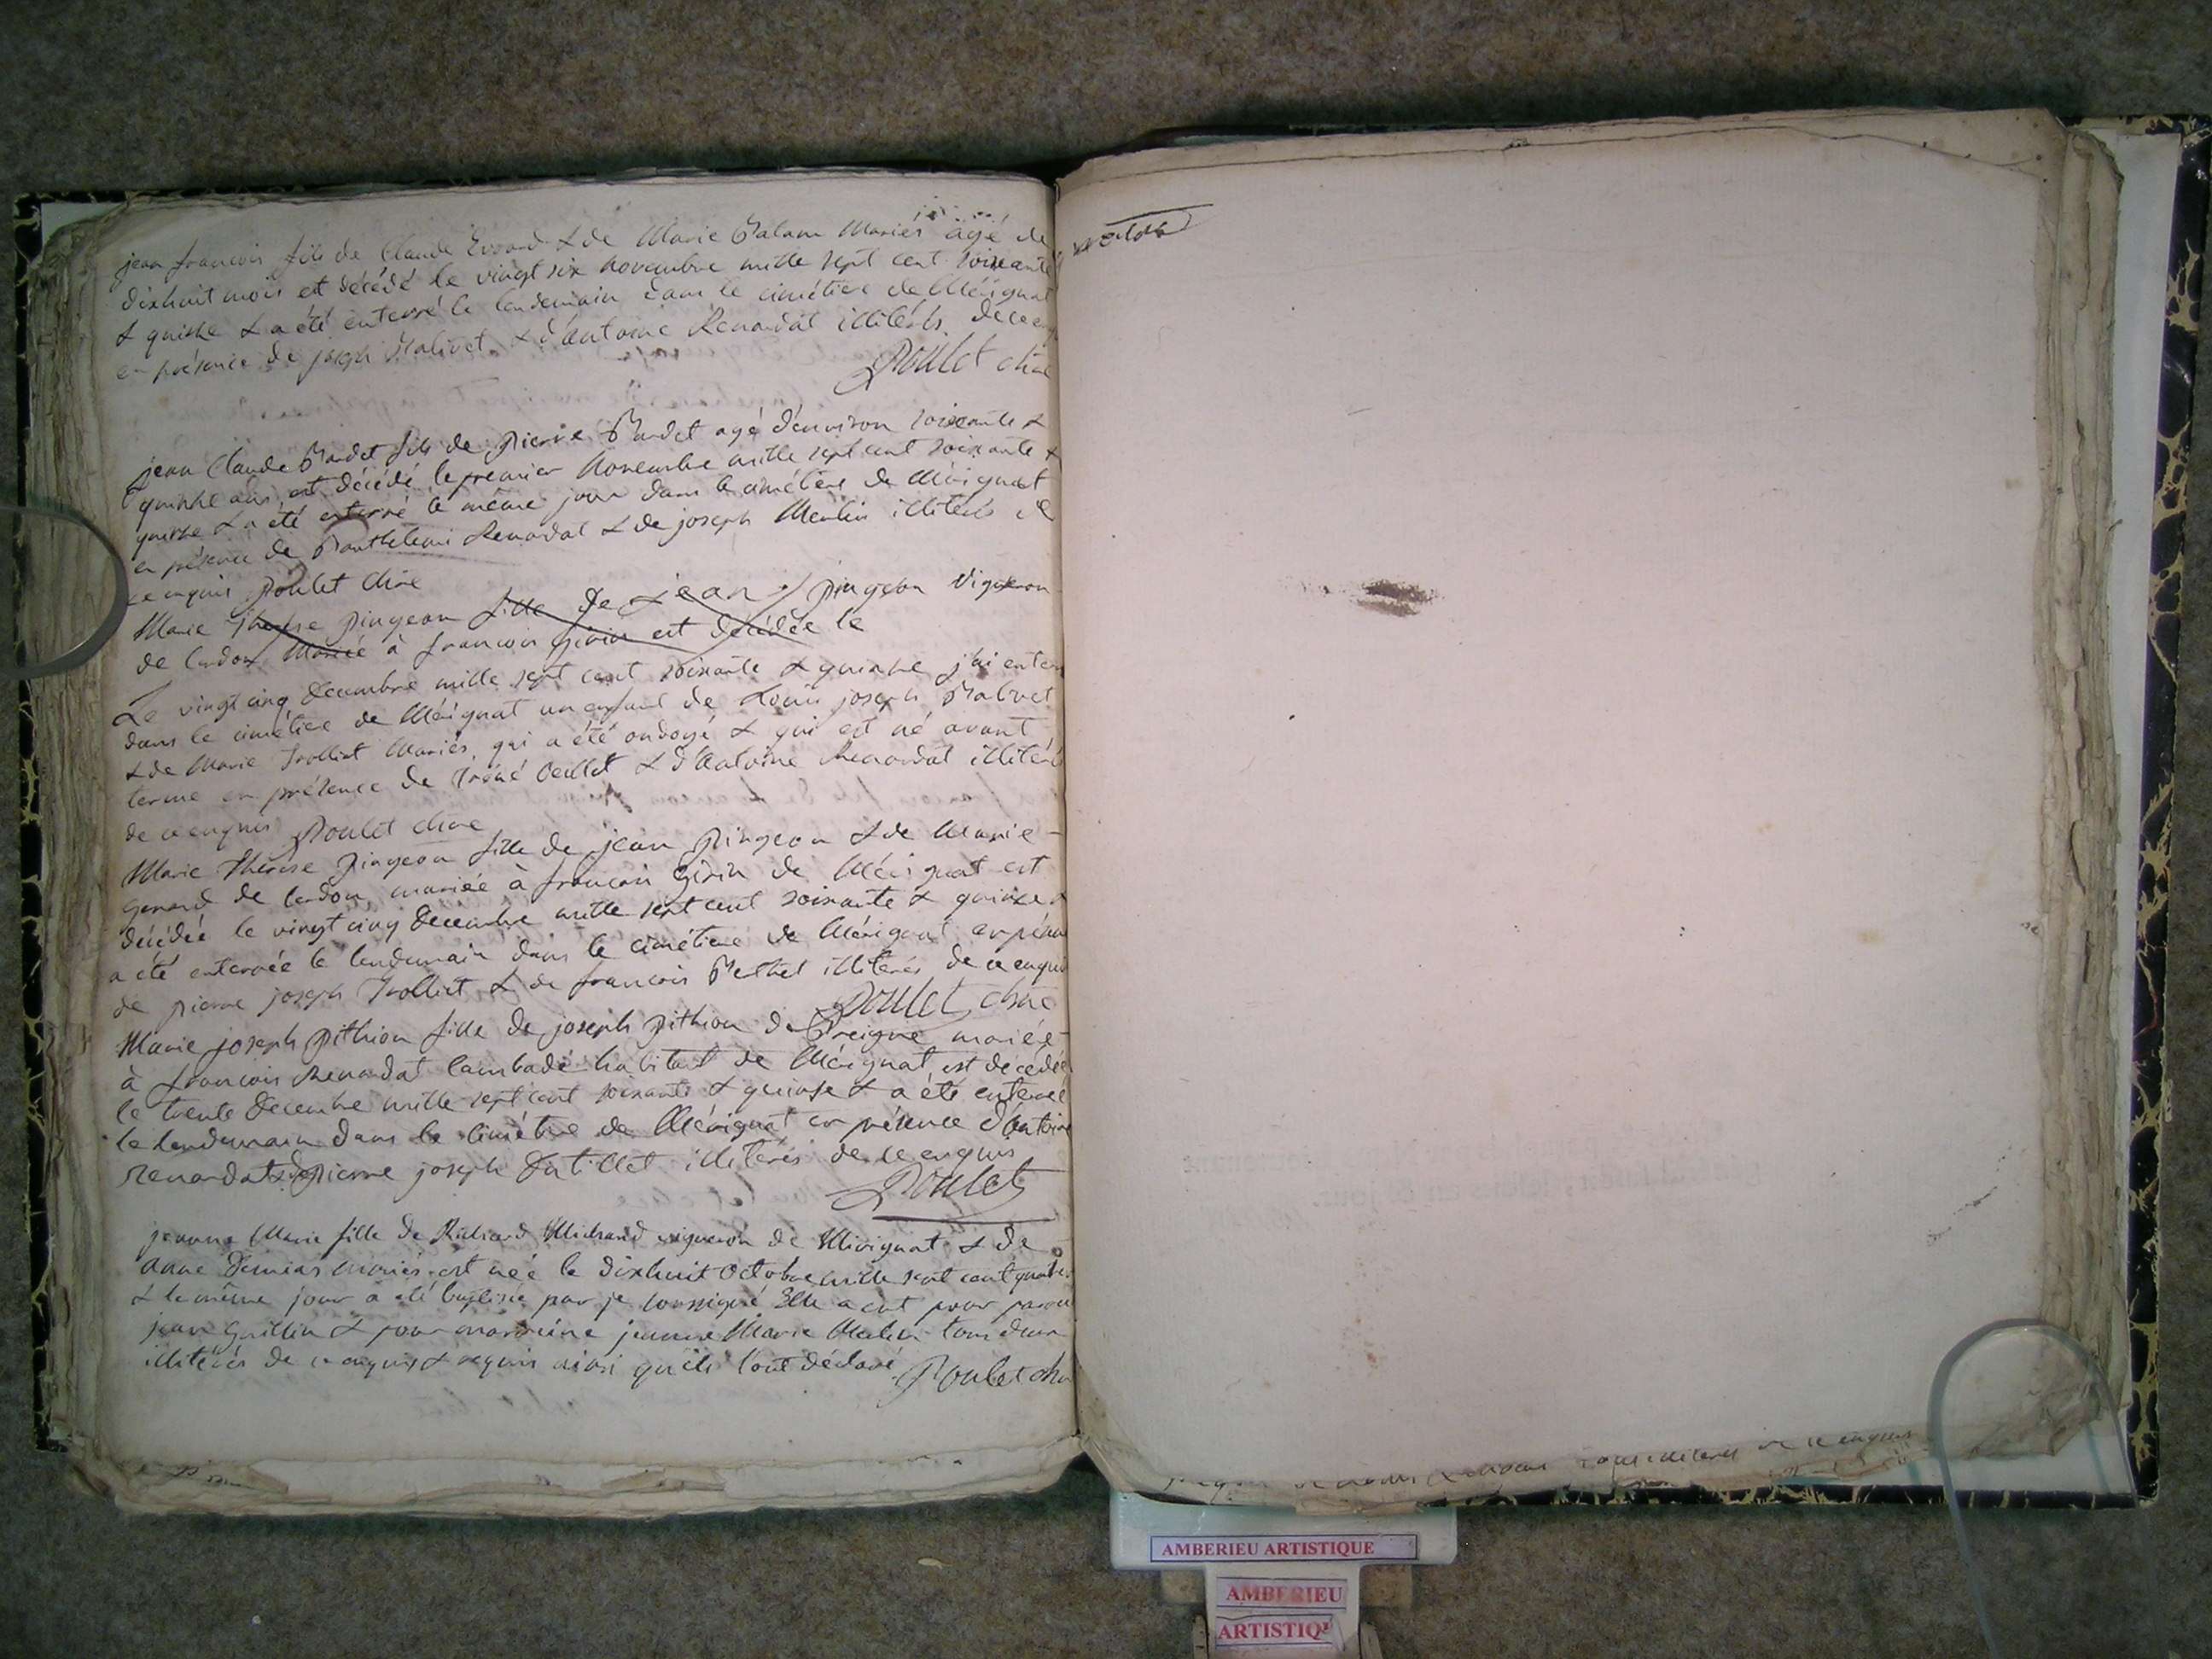 jean francois fils de Claude Evrard & de Marie Balam Mariés agé de
dixhuit mois est décédé le vingt six novembre mille sept cent soixante
& quinze & a été enterré le lendemain dans le cimétiere de Mérignat
en présence de joseph Malivet & d'Antoine Renardat illitérés de ce enq
Poulet curé
jean Claude Bardet fils de pierre Bardet agé d'environ soixante &
quinze ans est décédé le premier novembre mille sept cent soixante &
quinze & a été enterré le même jour dans le cimétiere de Mérignat
en présence de Barthelemi Renardat & de joseph Merlin illitérés de
ce enquis Poulet Curé
Marie therese pingeon fille de jean pingeon Vigneron
de Cerdon Mariée à francois Girin est décédée le
Le vingt cinq decembre mille sept cent soixante & quinze j'ai enterr
dans le cimétiere de Mérignat un enfant de Louis joseph Malivet
& de Marie Trolliet Mariés, qui a été ondoyé & qui est né avant
terme en présence de & d'Antoine Renardat illitéré
de ce enquis Poulet Curé
Marie Thérese Pingeon fille de jean Pingeon & de Marie
de Cerdon, mariée à francois Girin de Mérignat est
décédée le vingt cinq decembre mille sept cent soixante & quinze &
a été enterrée le lendemain dans le cimétiere de Mérignat en présen
de pierre joseph Trolliet & de francois Berthet illitérés de ce enquis
Poulet Curé
Marie joseph pithion fille de joseph pithion de Preigne mariée
à francois Renardat Lambadé habitant de Mérignat, est décédée
le trente decembre mille sept cent soixante & quinze & a été enterrée
le lendemain dans le cimétiere de Mérignat en présence d'Antoine
Renardat & de pierre joseph Dutillet illitérés de ce enquis
Poulet
jeanne Marie fille de Richard Michaud vigneron de Mérignat & de
anne mariés est née le dixhuit Octobre mille sept cent
& le même jour a été baptisée par je soussigné Elle a eut pour parain
jean Guillin & pour marraine jeanne Marie Merlin tous deux
illitérés de ce enquis & requis ainsi qu'ils l'ont déclaré Poulet cu
de ce enquis
AMBERIEU ARTISTIQUE
AMBERIEU
ARTISTIQ